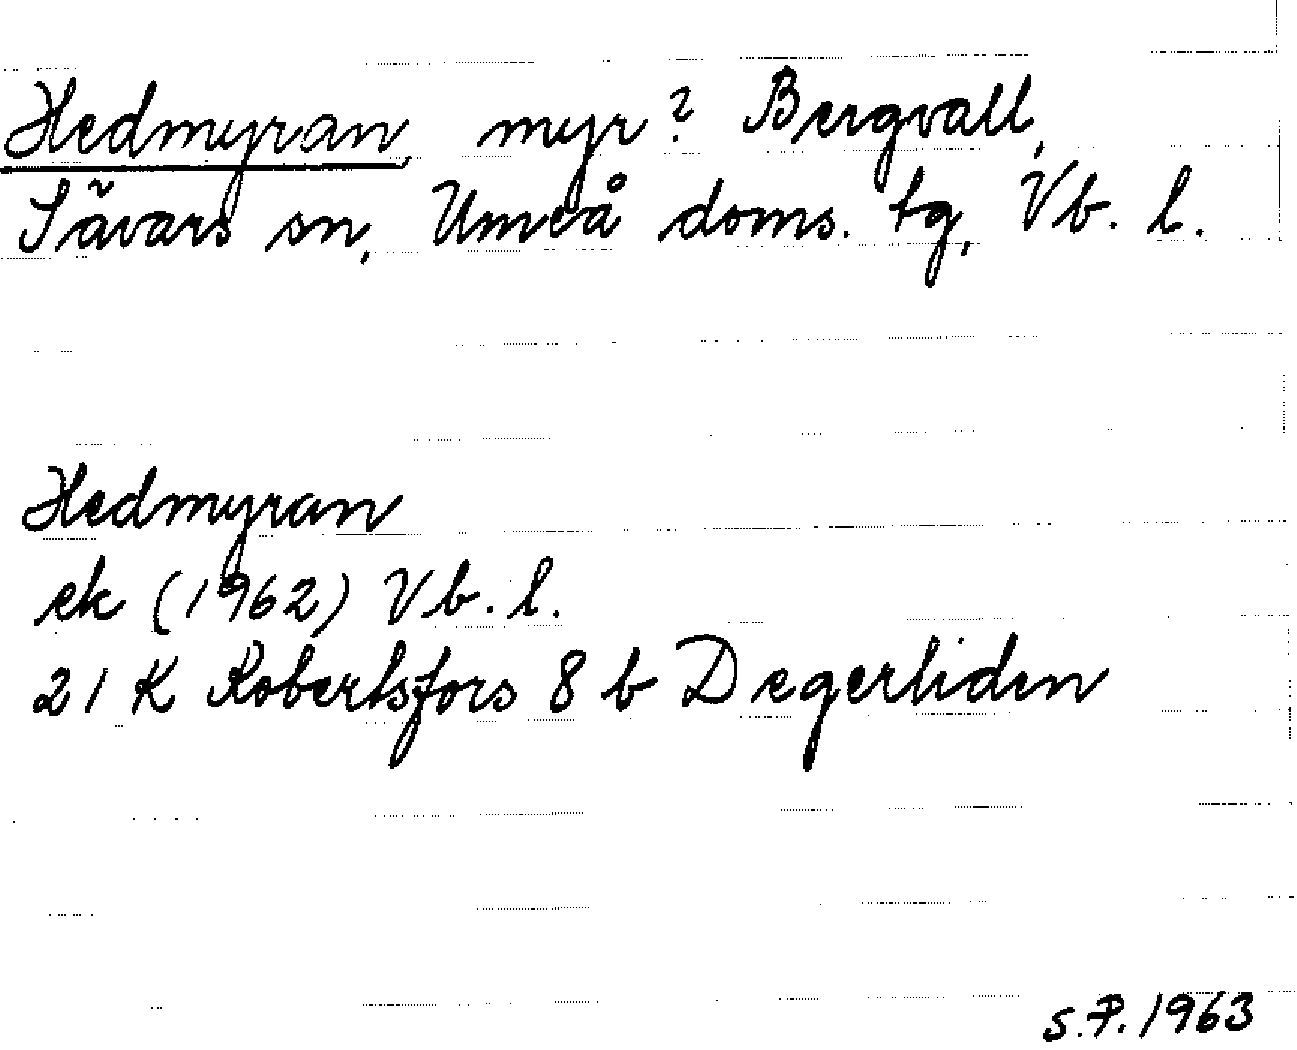 Hedmyran, myr? Bergvall,
Sävars sn, Umeå doms. tg, Vb. l.
Hedmyran
ek (1962) Vb. l.
21 K Robertsfors 8 b Degerliden
S.P. 1963